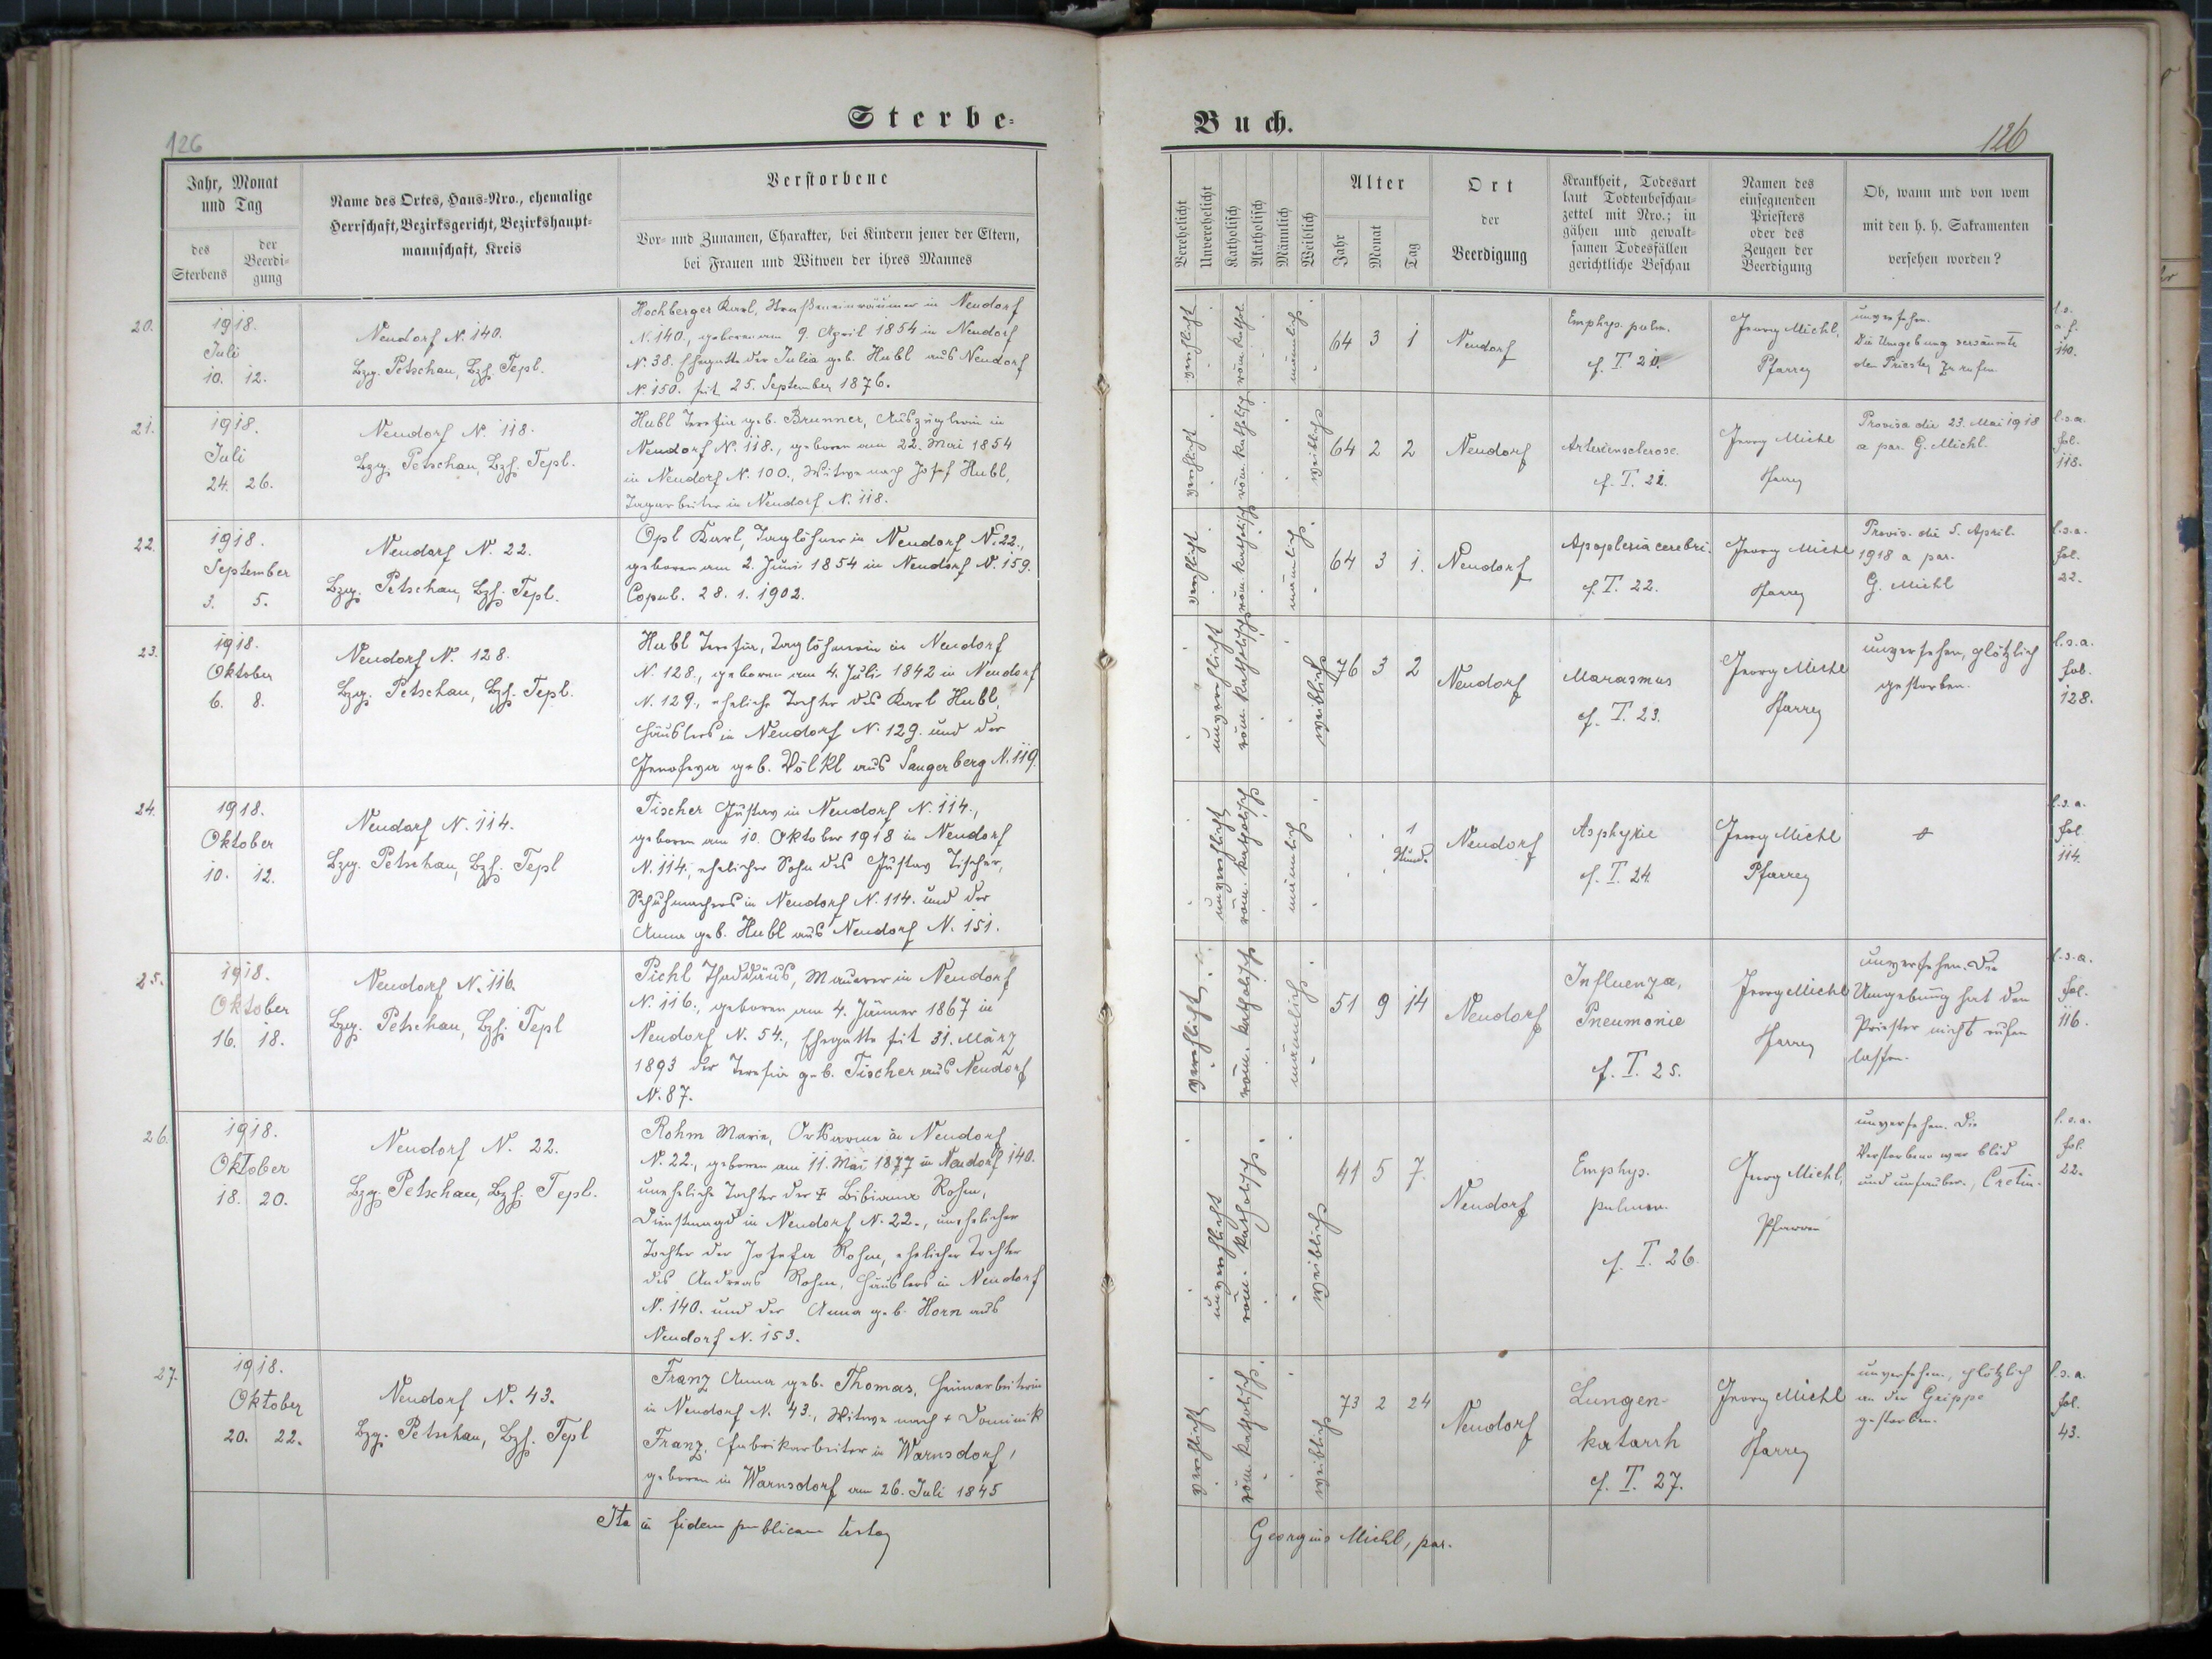 Sterbe-
Buch.
126
126
Jahr, Monat
und Tag
des
Sterbens
der
Beerdi-
gung
Name des Ortes, Haus-Nro., ehemalige
Herrschaft, Bezirksgericht, Bezirkshaupt-
mannschaft, Kreis
Verstorbene
Vor- und Zunamen, Charakter, bei Kindern jener der Eltern,
bei Frauen und Witwen der ihres Mannes
Verehelicht
Unverehelicht
Katholisch
Akatholisch
Männlich
Weiblich
Alter
Jahr
Monat
Tag
Ort
der
Beerdigung
Krankheit, Todesart
laut Todtenbeschau-
zettel mit Nro.; in
gähen und gewalt-
samen Todesfällen
gerichtliche Beschau
Namen des
einsegnenden
Priesters
oder des
Zeugen der
Beerdigung
Ob, wann und von wem
mit den h. h. Sakramenten
versehen worden?
20.
1918.
Juli
10. 12.
Neudorf N. 140.
Bzg. Petschau, Bzh. Tepl.
Hochberger Karl, Straßeneinräumer in Neudorf
N. 140., geboren am 9. April 1854 in Neudorf
N. 38. Ehegatte der Julia geb. Hubl aus Neudorf
N. 150. seit 25. September 1876.
verehlicht
röm. kathol.
männlich
64 3 1
Neudorf
Emphys. pulm.
cf. T. 20.
Georg Michl,
Pfarrer
unversehen.
Die Umgebung versäumte
den Priester zu rufen
l. s.
a. f.
140.
21.
1918.
Juli
24. 26.
Neudorf N. 118.
Bzg. Petschau, Bzh. Tepl.
Hubl Theresia geb. Brunner, Auszüglerin in
Neudorf N. 118., geboren am 22. Mai 1854
in Neudorf N. 100., Witwe nach Josef Hubl,
Tagarbeiter in Neudorf N. 118.
verehlicht
röm. katholisch
weiblich
64 2 2
Neudorf
Arteriensclerose.
cf. T. 21.
Georg Michl
Pfarrer
Provisa die 23. Mai 1918
a par. G. Michl.
l. s. a.
fol.
118.
22.
1918.
September
3. 5.
Neudorf N. 22.
Bzg. Petschau, Bzh. Tepl.
Opl Karl, Taglöhner in Neudorf N. 22.,
geboren am 2. Juni 1854 in Neudorf N. 159.
Copul. 28. 1. 1902.
verehlicht
röm. katholisch
männlich
64 3 1.
Neudorf
Apoplexia cerebri.
cf. T. 22.
Georg Michl
Pfarrer
Provis. die 5. April.
1918 a par.
G. Michl
l. s. a.
fol.
22.
23.
1918.
Oktober
6. 8.
Neudorf N. 128.
Bzg. Petschau, Bzh. Tepl.
Hubl Theresia, Taglöhnerin in Neudorf
N. 128., geboren am 4. Juli 1842 in Neudorf
N. 129., eheliche Tochter des Karl Hubl,
Häuslers in Neudorf N. 129. und der
Genofeva geb. Völkl aus Sangerberg N. 119.
unverehlicht
röm. katholisch
weiblich
76 3 2
Neudorf
Marasmus
cf. T. 23.
Georg Michl
Pfarrer
unversehen, plötzlich
gestorben.
l. s. a.
fol.
128.
24.
1918.
Oktober
10. 12.
Neudorf N. 114.
Bzg. Petschau, Bzh. Tepl
Tischer Gustav in Neudorf N. 114.,
geboren am 10. Oktober 1918 in Neudorf
N. 114., ehelicher Sohn des Gustav Tischer,
Schuhmachers in Neudorf N. 114. und der
Anna geb. Hubl aus Neudorf N. 151.
unverehlicht
röm. katholisch
männlich
1
Stunde
Neudorf
Asphyxie
cf. T. 24.
Georg Michl
Pfarrer
l. s. a.
fol.
114.
25.
1918.
Oktober
16. 18.
Neudorf N. 116.
Bzg. Petschau, Bzh. Tepl
Pichl Thaddäus, Maurer in Neudorf
N. 116., geboren am 4. Jänner 1867 in
Neudorf N. 54., Ehegatte seit 31. März
1893 der Theresia geb. Tischer aus Neudorf
N. 87.
verehlicht
röm. katholisch
männlich
51 9 14
Neudorf
Influenza,
Pneumonie
cf. T. 25.
Georg Michl
Pfarrer
unversehen. Die
Umgebung hat den
Priester nicht rufen
lassen.
l. s. a.
fol.
116.
26.
1918.
Oktober
18. 20.
Neudorf N. 22.
Bzg. Petschau, Bzh. Tepl.
Rohm Marie, Ortsarme in Neudorf
N. 22., geboren am 11. Mai 1877 in Neudorf 140.
uneheliche Tochter der + Bibiana Rohm,
Dienstmagd in Neudorf N. 22., unehelicher
Tochter der Josefa Rohm, ehelicher Tochter
des Andreas Rohm, Häuslers in Neudorf
N. 140. und der Anna geb. Horn aus
Neudorf N. 153.
unverehlicht
röm. katholisch
weiblich
41 5 7.
Neudorf
Emphys.
pulmon.
cf. T. 26.
Georg Michl,
Pfarrer
unversehen. Die
Verstorbene war blöd
und unsauber., Cretin.
l. s. a.
fol.
22.
27.
1918.
Oktober
20. 22.
Neudorf N. 43.
Bzg. Petschau, Bzh. Tepl
Franz Anna geb. Thomas, Heimarbeiterin
in Neudorf N. 43., Witwe nach + Dominik
Franz, Fabrikarbeiter in Warnsdorf,
geboren in Warnsdorf am 26. Juli 1845
verehlicht
röm. katholisch.
weiblich
73 2 24
Neudorf
Lungen-
katarrh
cf. T. 27.
Georg Michl
Pfarrer
unversehen., plötzlich
an der Grippe
gestorben.
l. s. a.
fol.
43.
Ita in fidem publicam testor
Georgius Michl, par.